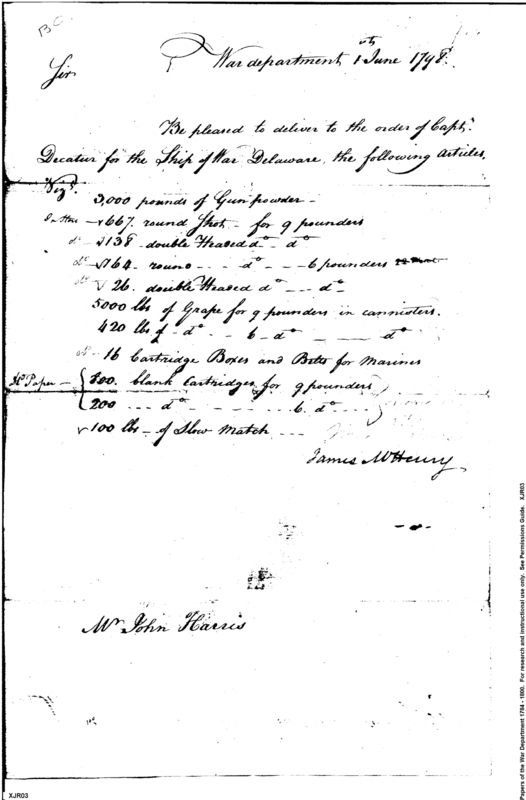 War department 1 June 1798.
Sir
Be pleased to deliver to the order of Capt.
Decatur for the Ship of War Delaware, the following Articles,
Vizt.
3,000 pounds of Gunpowder -
667. round Shot - for 9 pounders
138 - double Headed do do
164 - round - - - do - - - 6 pounders
26. double Headed do - - - do -
5000 lbs of Grape for 9 pounders in cannisters.
420 lbs of - do - - 6 - do - - - - do
16 Cartridge Boxes and Belts for Marines
Paper - 300. blank Cartridges for 9 pounders
200 - - - do - - - - - 6. do - - -
100 lbs - of Slow Match - - - -
James McHenry
Mr John Harris
Papers of the War Department 1784 - 1800. For research and instructional use only. See Permissions Guide. XJR03
XJR03